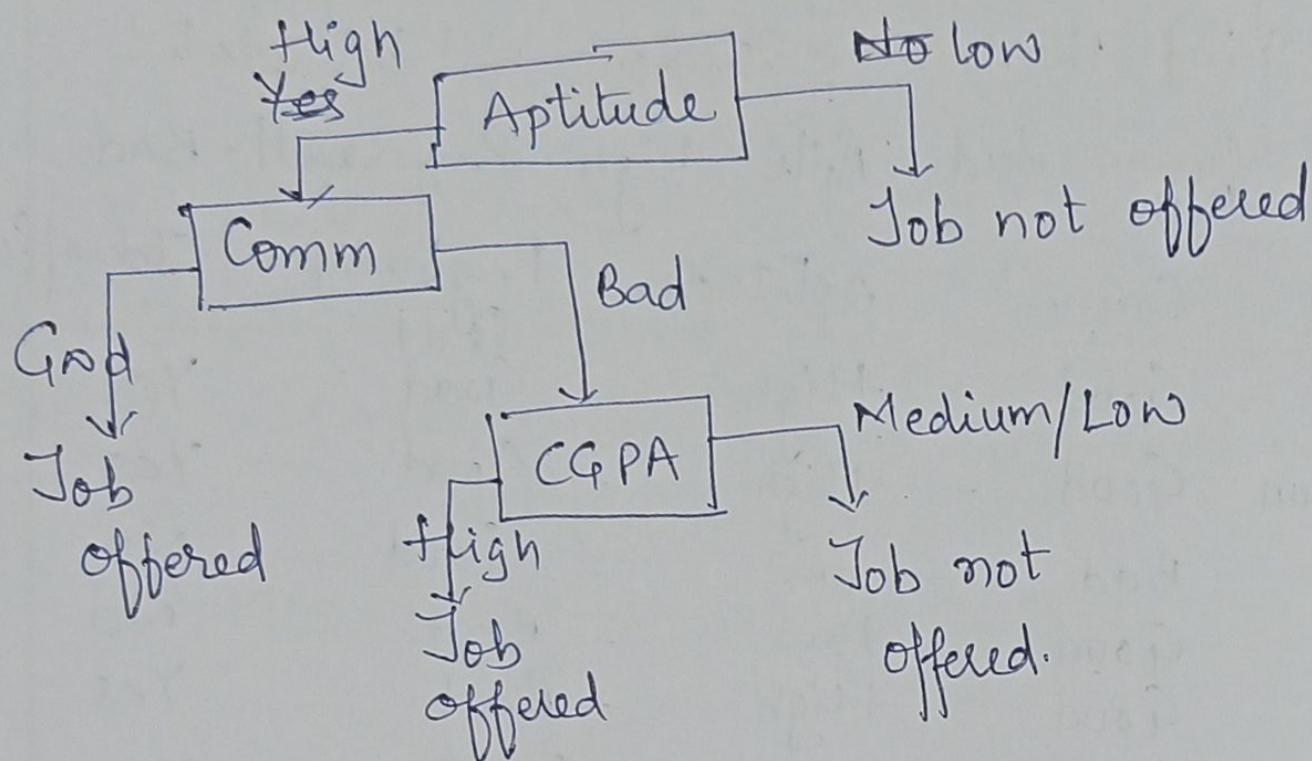 High
Yes
Aptitude
No low
Job not offered
Comm
Bad
Good
Job
offered
CGPA
Medium/Low
High
Job
offered
Job not
offered.